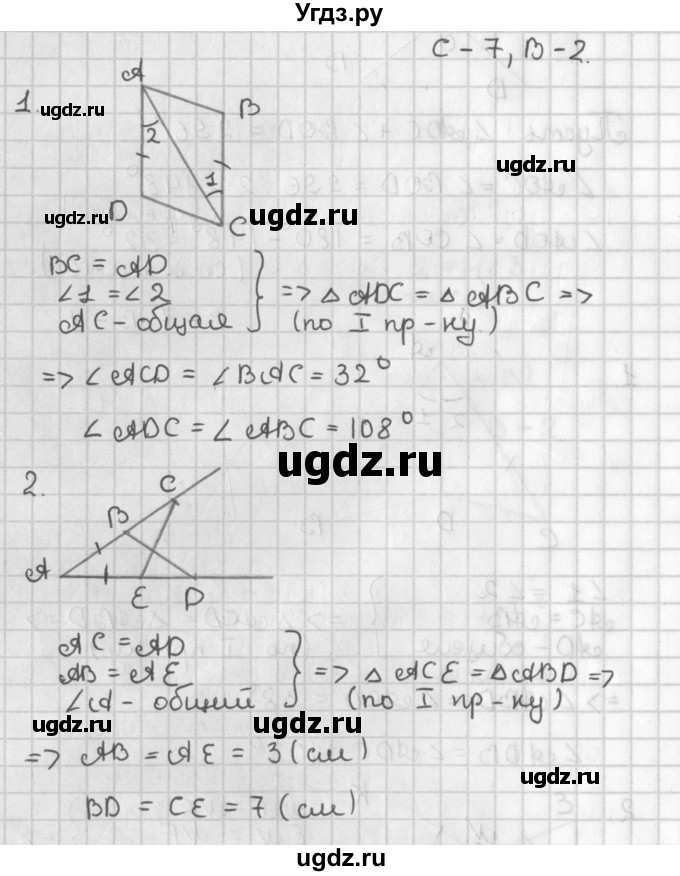 Угдз.ру
С - 7, В - 2.
ugdz.ru
1.
A
B
2
1
ugdz.ru
D
C
ugdz.ru
BC = AD
∠1 = ∠2
AC - общая
=> △ADC = △ABC =>
(по I пр-ку)
ugdz.ru
=> ∠ACD = ∠BAC = 32°
∠ADC = ∠ABC = 108°
ugdz.ru
2.
C
B
A
E
D
ugdz.ru
AC = AD
AB = AE
∠A - общий
=> △ACE = △ABD =>
(по I пр-ку)
ugdz.ru
ugdz.ru
=> AB = AE = 3 (см)
ugdz.ru
BD = CE = 7 (см)
ugdz.ru
ugdz.ru